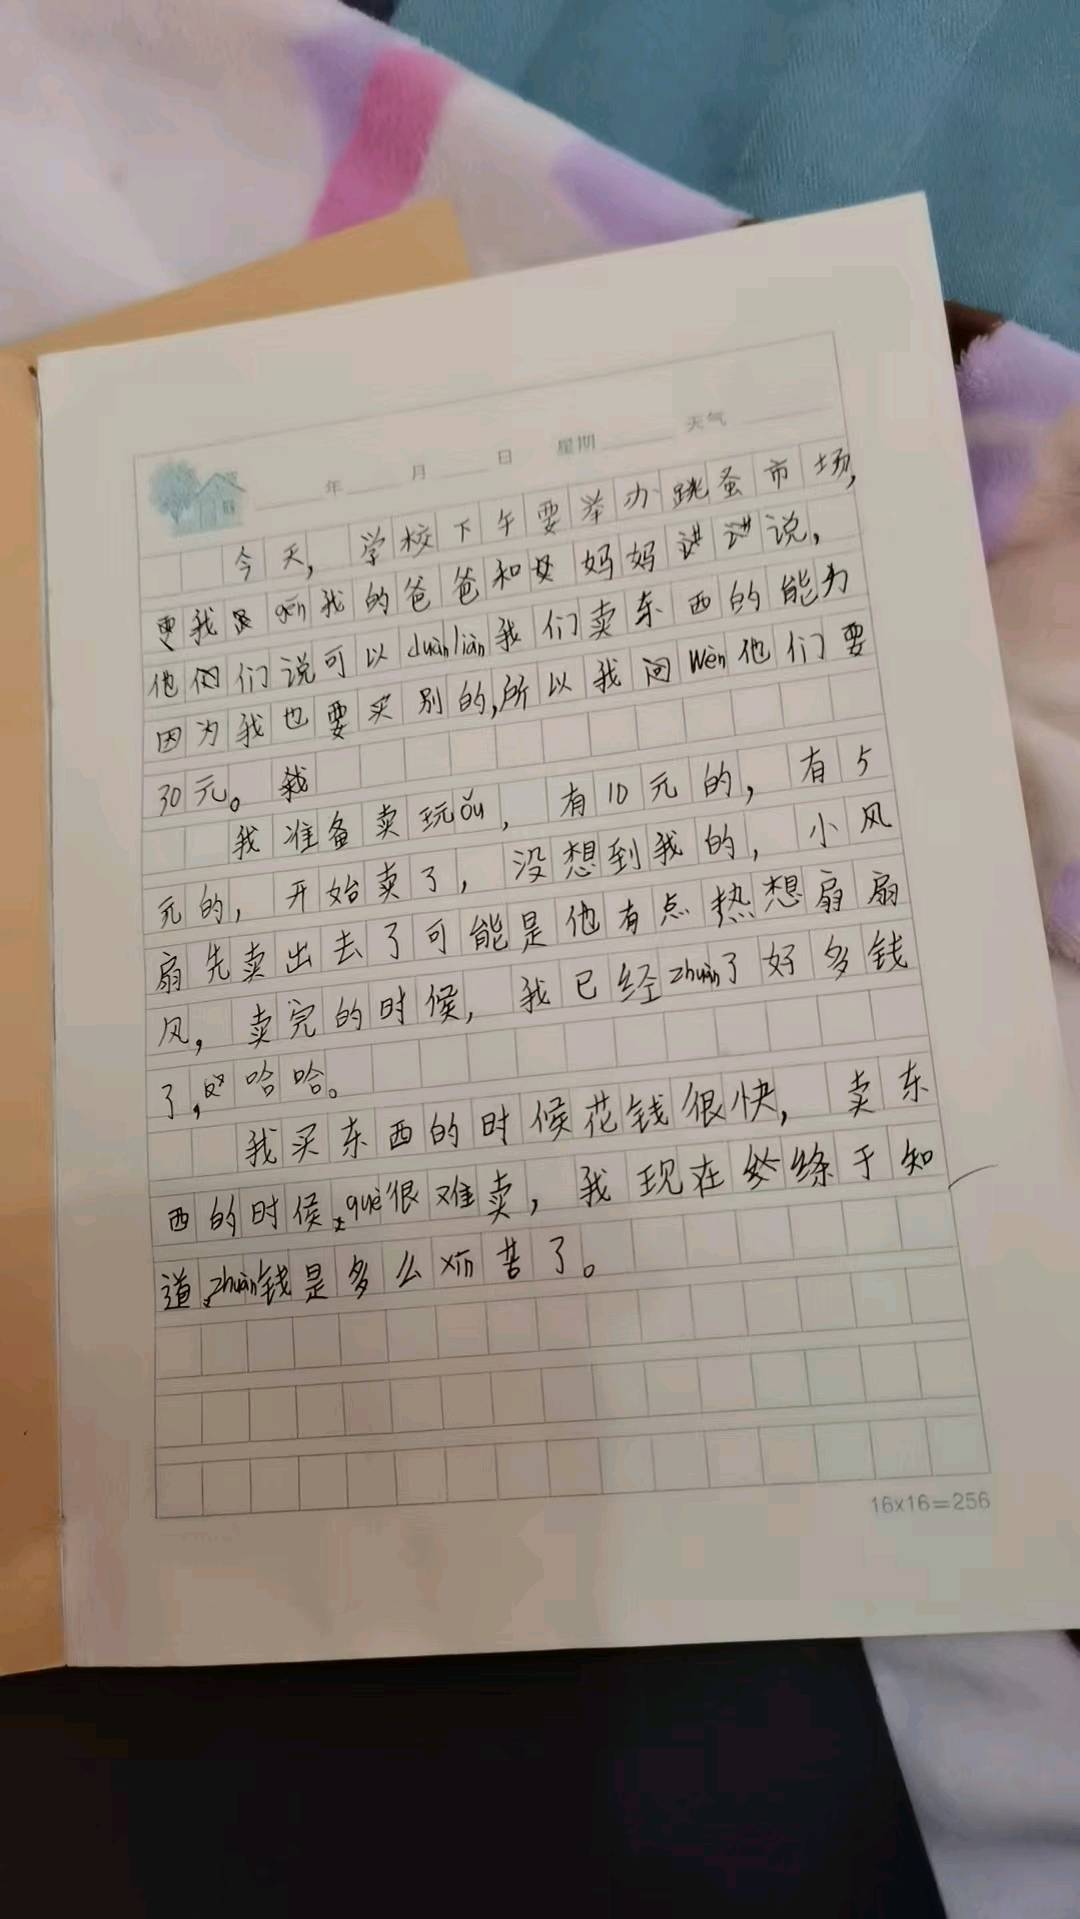 年 月 日 星期 天气
今天，学校下午要举办跳蚤市场，
我gēn我的爸爸和妈妈讲讲说，
他们说可以duànliàn我们卖东西的能力
因为我也要买别的，所以我问wèn他们要
30元。我
我准备卖玩ǒu，有10元的，有5
元的，开始卖了，没想到我的，小风
扇先卖出去了可能是他有点热想扇扇
风，卖完的时候，我已经zhuàn了好多钱
了，哈哈。
我买东西的时候花钱很快，卖东
西的时候，què很难卖，我现在终于知
道，zhuàn钱是多么xīn苦了。
16×16=256